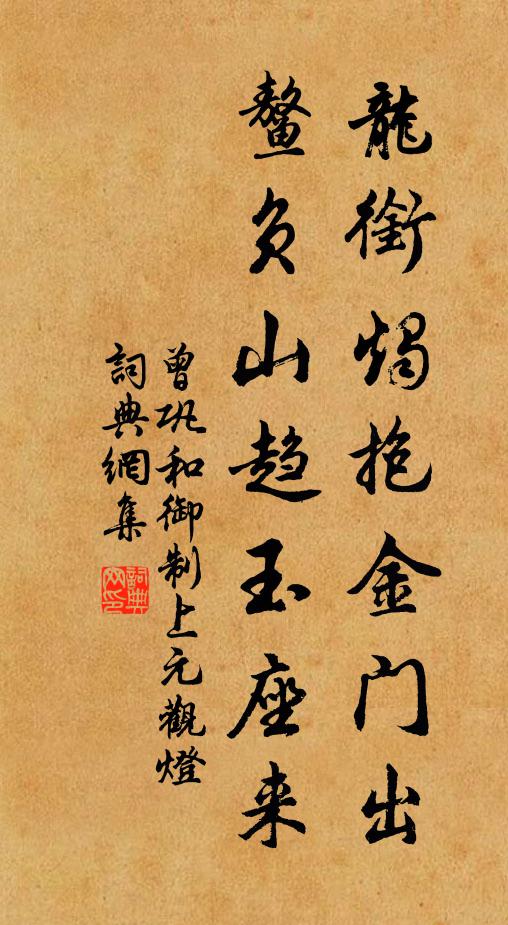 龍銜燭抱金门出
鰲負山趋玉座来
曾巩和御制上元觀燈
詞典網集
詞典网印